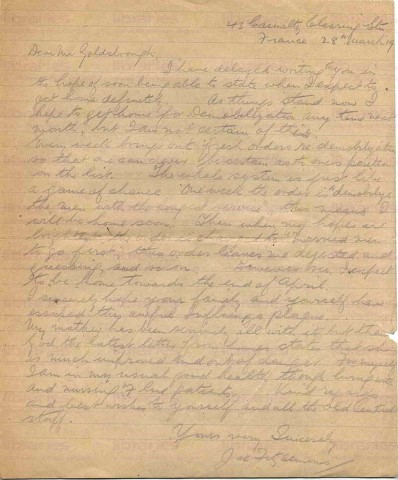 43 Casualty Clearing Stn
France 28th March 19
Dear Mr Goldsbrough,
I have delayed writing to you in
the hope of soon being able to state when I expect to
get home definitely. As things stand now I
hope to get home for Demobilization any time next
month, but I am not certain of this.
Every week brings out fresh orders re demobilization
so that one can never be certain as to one's position
on the list. The whole system is just like
a game of chance. One week the order is "demobilize
the men with the longest service", this means I
will be home soon. Then when my hopes are
"married men
to go first", this order leaves me dejected and
guessing, and so on. However I expect
to be home towards the end of April.
I sincerely hope your family and yourself have
escaped this awful influenza plague.
My mother has been seriously ill with it but thank
God the latest letter from home states that she
is much improved and out of danger. For myself
I am in my usual good health, though
and nursing Flu patients. Kind regards
and best wishes to yourself and all the old Central
staff.
Yours very Sincerely
Joe Fitzsimons